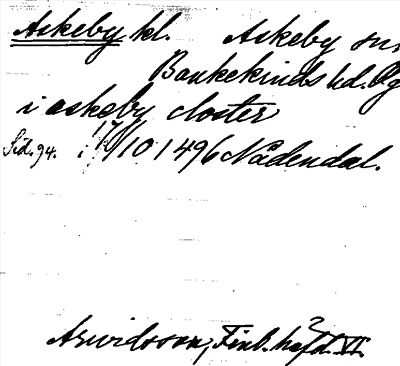 Askeby kl. Askeby sn
Bankekinds hd. Ög
i askeby closter
Sid. 94. 17/10 1496 Nådendal.
Arwidsson, Finl. häfd. VI.